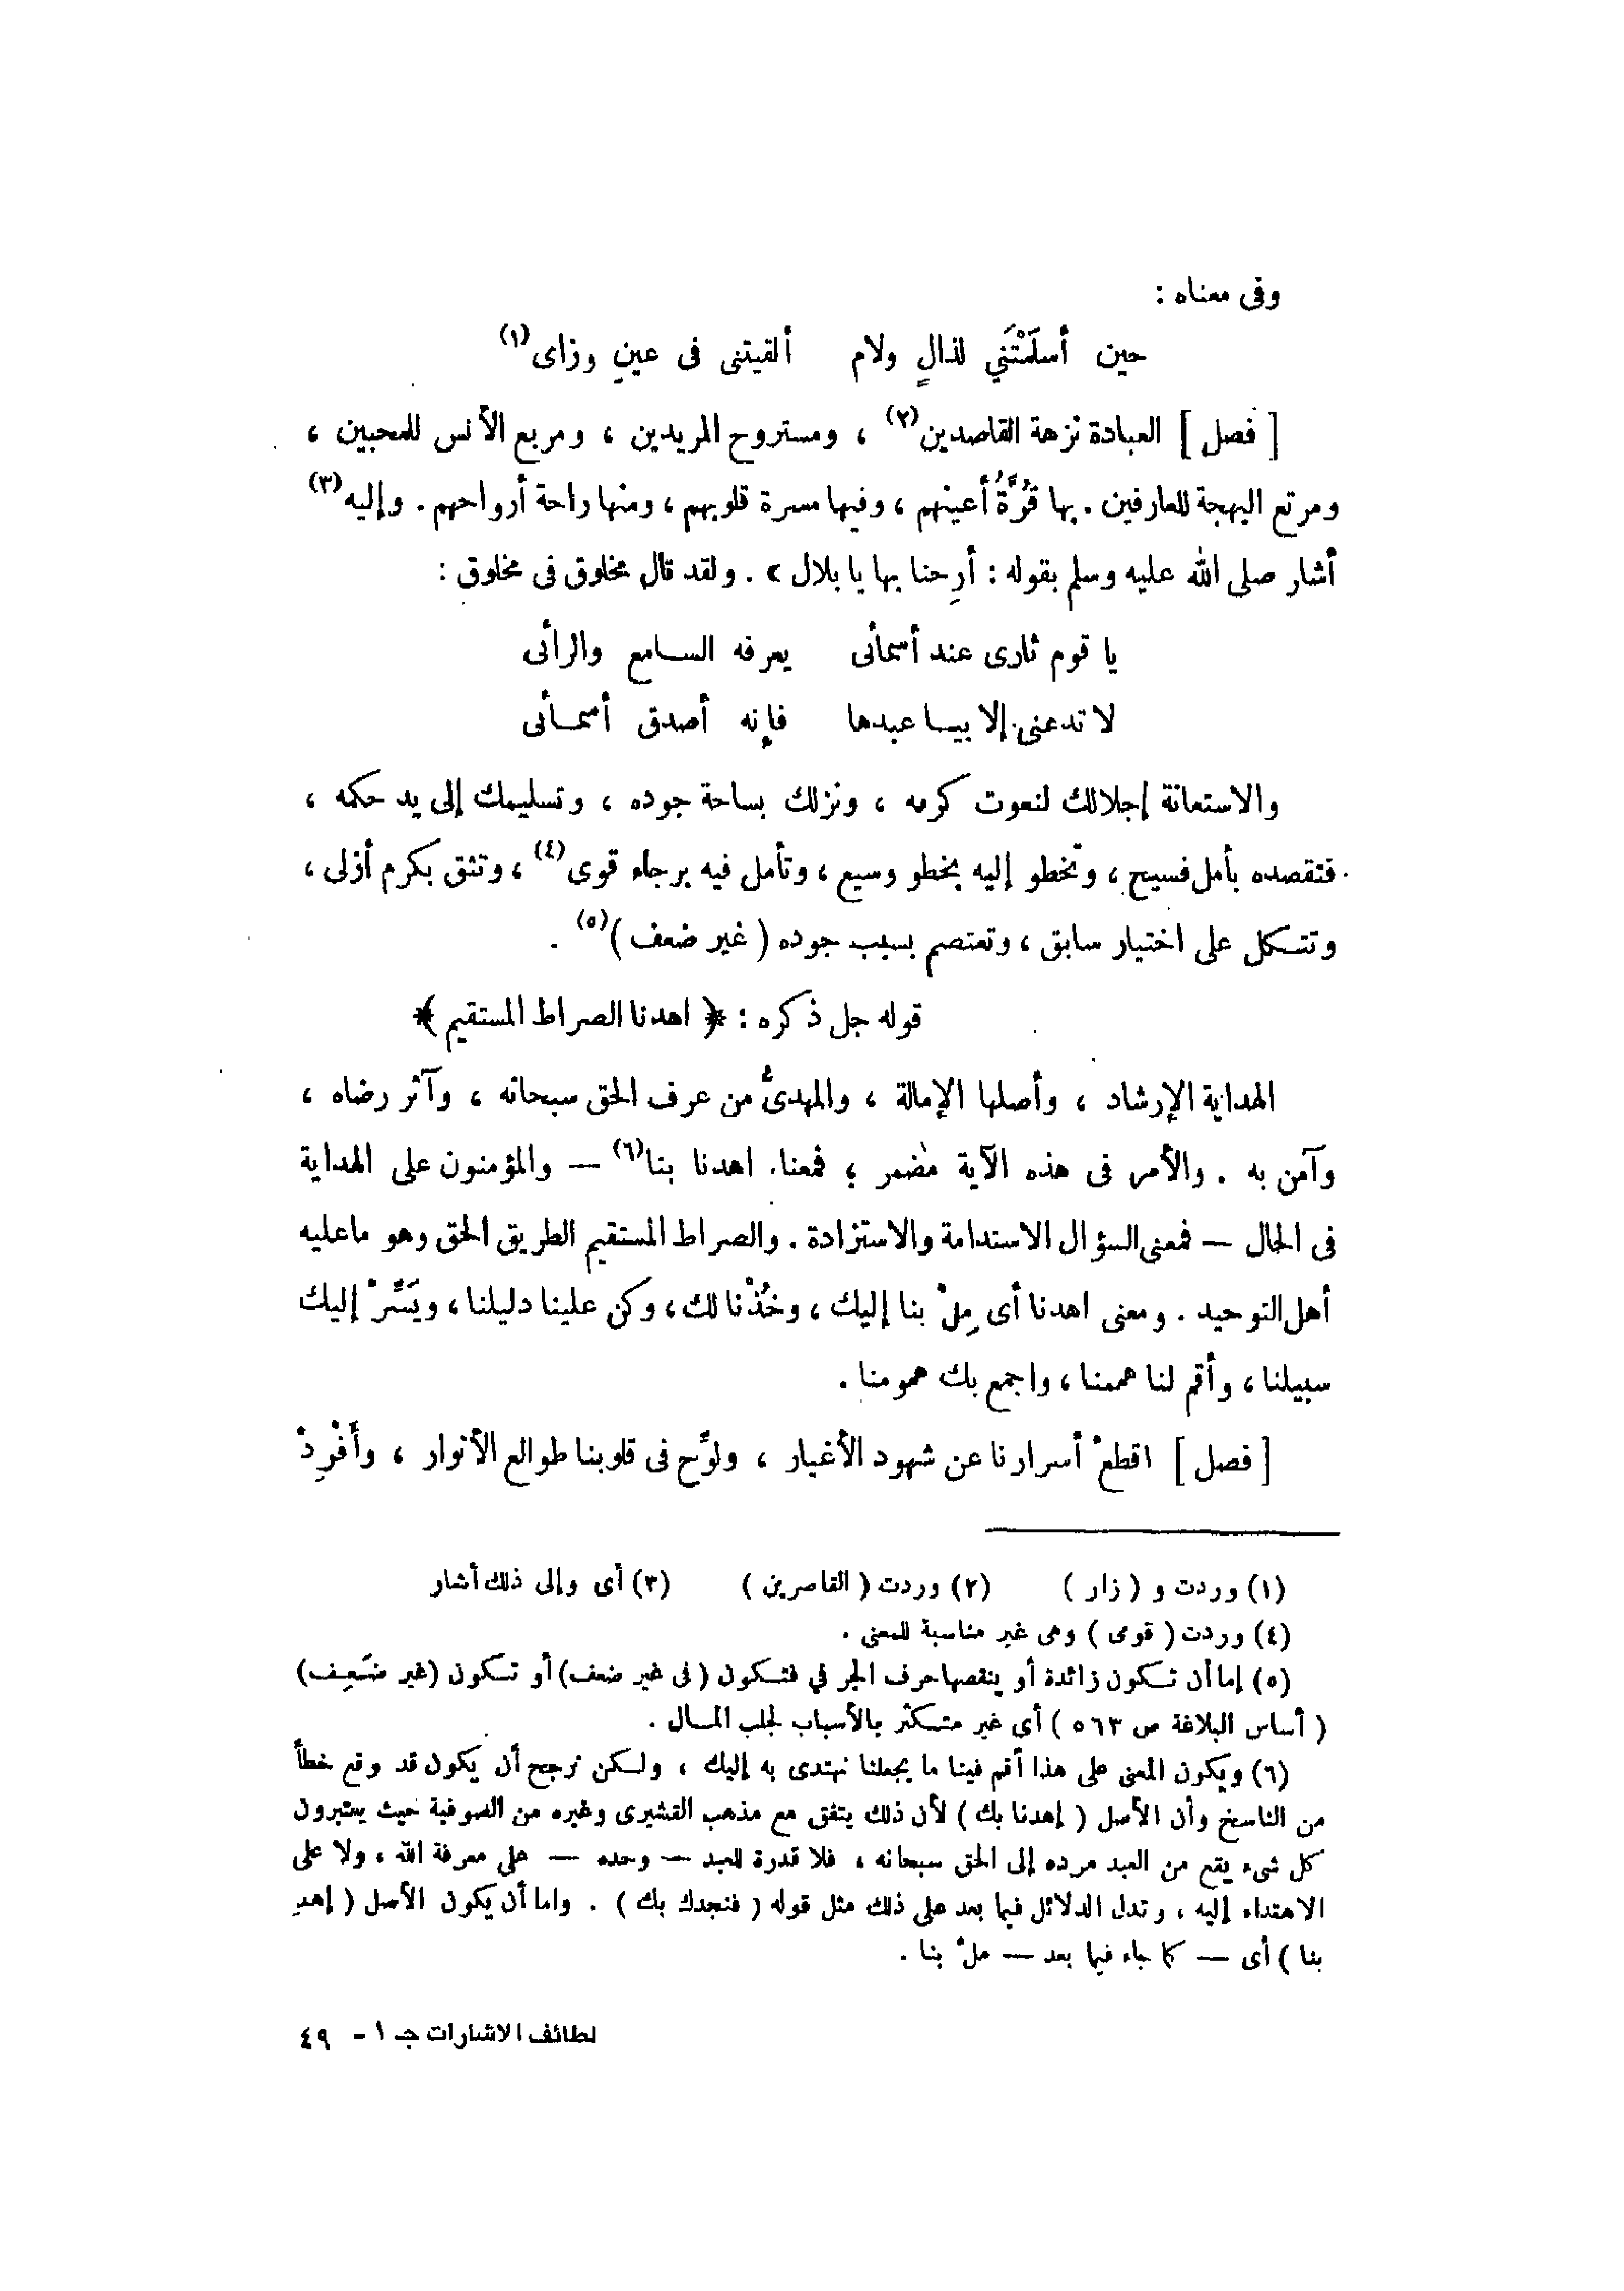 وفى معناه :
حين أسلَمْتَني لذالٍ ولام ألقيتنى فى عينٍ وزاى(١)
[ فصل ] العبادة نزهة القاصدين(٢) ، ومستروح المريدين ، ومربع الأنس للمحبين ،
ومرتع البهجة للعارفين . بها قُرَّةُ أعينهم ، وفيها مسرة قلوبهم ، ومنها راحة أرواحهم . وإليه(٣)
أشار صلى الله عليه وسلم بقوله : أرِحنا بها يا بلال » . ولقد قال مخلوق فى مخلوق :
يا قوم ثارى عند أسمائى يعرفه السامع والرائى
لا تدعنى إلا بيا عبدها فإنه أصدق أسمائى
والاستعانة إجلالك لنعوت كرمه ، ونزلك بساحة جوده ، وتسليمك إلى يد حكمه ،
فتقصده بأمل فسيح ، وتخطو إليه بخطو وسيع ، وتأمل فيه برجاء قوى(٤) ، وتثق بكرم أزلى ،
وتتكل على اختيار سابق ، وتعتصم بسبب جوده ( غير ضعف )(٥) .
قوله جل ذكره : ﴿ اهدنا الصراط المستقيم ﴾
الهداية الإرشاد ، وأصلها الإمالة ، والمهدىُّ من عرف الحق سبحانه ، وآثر رضاه ،
وآمن به . والأمر فى هذه الآية مضمر ؛ فمعناه اهدنا بنا(٦) — والمؤمنون على الهداية
فى الحال — فمعنى السؤال الاستدامة والاستزادة . والصراط المستقيم الطريق الحق وهو ما عليه
أهل التوحيد . ومعنى اهدنا أى مِلْ بنا إليك ، وخُذْنا لك ، وكن علينا دليلنا ، ويَسِّرْ إليك
سبيلنا ، وأقم لنا هممنا ، واجمع بك همومنا .
[ فصل ] اقطعْ أسرارنا عن شهود الأغيار ، ولوِّح فى قلوبنا طوالع الأنوار ، وأَفْرِدْ
(١) وردت و ( زار ) (٢) وردت ( القاصرين ) (٣) أى وإلى ذلك أشار
(٤) وردت ( قومى ) وهى غير مناسبة للمعنى .
(٥) إما أن تكون زائدة أو ينقصها حرف الجر في فتكون ( فى غير ضعف) أو تكون (غير ضَعِف)
( أساس البلاغة ص ٥٦٣ ) أى غير متكثر بالأسباب لجلب المال .
(٦) ويكون المعنى على هذا أقم فينا ما يجعلنا نهتدى به إليك ، ولكن نرجح أن يكون قد وقع خطأ
من الناسخ وأن الأصل ( إهدنا بك ) لأن ذلك يتفق مع مذهب القشيرى وغيره من الصوفية حيث يعتبرون
كل شىء يقع من العبد مرده إلى الحق سبحانه ، فلا قدرة للعبد — وحده — على معرفة الله ، ولا على
الاهتداء إليه ، وتدل الدلائل فيما بعد على ذلك مثل قوله ( فنجدك بك ) . واما أن يكون الأصل ( إهدِ
بنا ) أى — كما جاء فيما بعد — ملْ بنا .
لطائف الاشارات جـ ١ - ٤٩